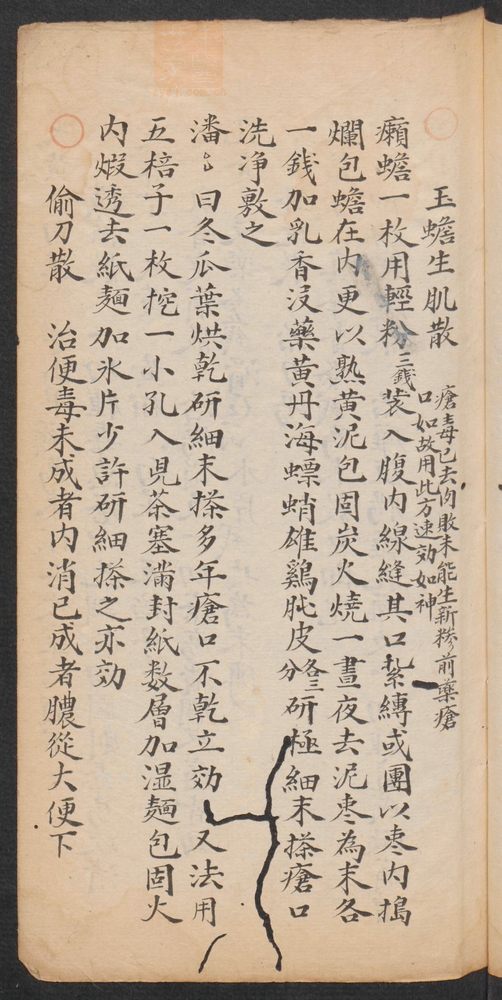 玉蟾生肌散 瘡毒已去肉敗未能生新摻前藥瘡
口如故用此方速効如神
癩蟾一枚用輕粉三錢裝入腹內線縫其口紮縛或團以枣內搗
爛包蟾在內更以熟黃泥包固炭火燒一晝夜去泥枣為末各
一錢加乳香沒藥黃丹海螵蛸雄鷄肫皮各三分研極細末搽瘡口
洗净敷之
潘曰冬瓜葉烘乾研細末搽多年瘡口不乾立効 又法用
五棓子一枚挖一小孔入児茶塞滿封紙数層加湿麵包固火
內煆透去紙麵加氷片少許研細搽之亦効
偷刀散 治便毒未成者內消已成者膿從大便下